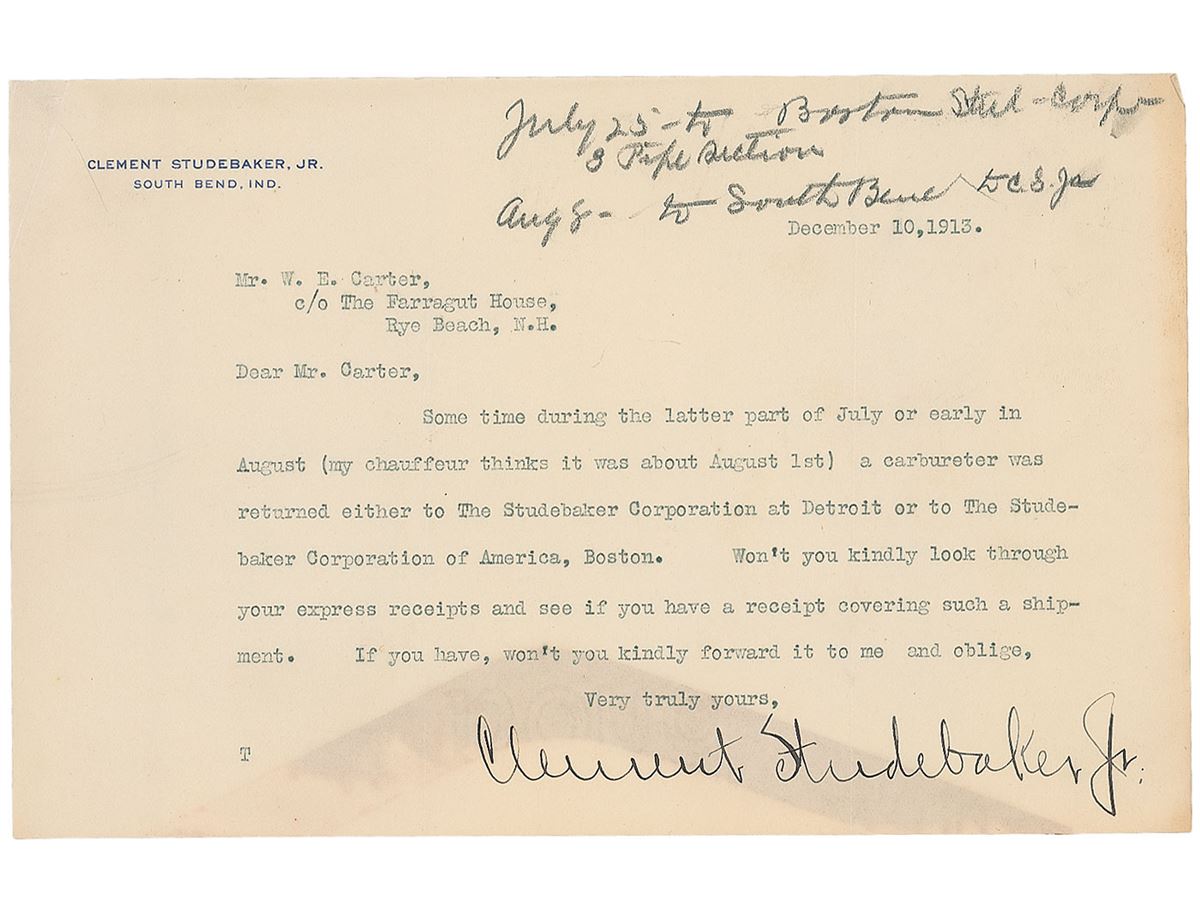 CLEMENT STUDEBAKER, JR.
SOUTH BEND, IND.
July 25 - to Boston Stud - Corp
3 Pipe section
Aug 8 - to South Bend to C.S. Jr
December 10,1913.
Mr. W. E. Carter,
c/o The Farragut House,
Rye Beach, N.H.
Dear Mr. Carter,
Some time during the latter part of July or early in
August (my chauffeur thinks it was about August 1st) a carbureter was
returned either to The Studebaker Corporation at Detroit or to The Stude-
baker Corporation of America, Boston. Won't you kindly look through
your express receipts and see if you have a receipt covering such a ship-
ment. If you have, won't you kindly forward it to me and oblige,
Very truly yours,
T
Clement Studebaker Jr.